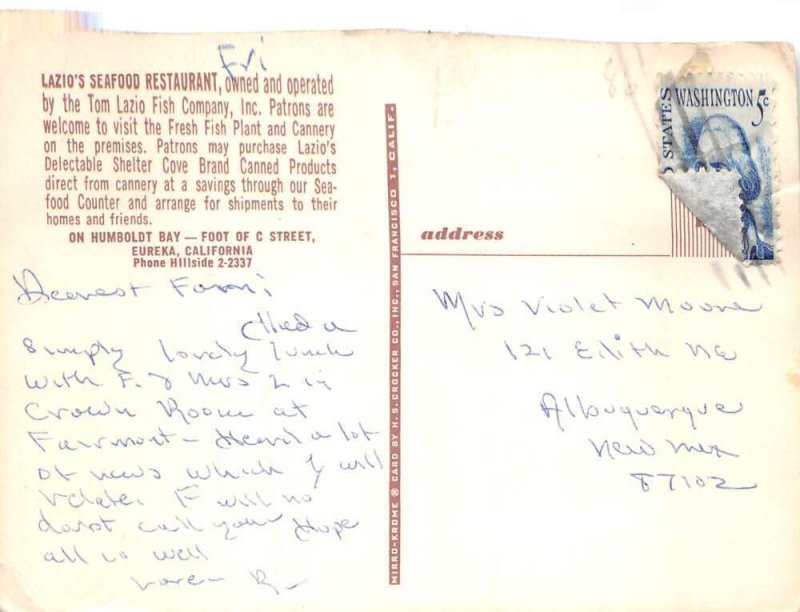 Fri
LAZIO'S SEAFOOD RESTAURANT, owned and operated
by the Tom Lazio Fish Company, Inc. Patrons are
welcome to visit the Fresh Fish Plant and Cannery
on the premises. Patrons may purchase Lazio's
Delectable Shelter Cove Brand Canned Products
direct from cannery at a savings through our Sea-
food Counter and arrange for shipments to their
homes and friends.
ON HUMBOLDT BAY — FOOT OF C STREET,
EUREKA, CALIFORNIA
Phone Hillside 2-2337
Dearest
Had a
simply lovely lunch
with F. & Mrs L in
Crown Room at
Fairmont — Heard a lot
of news which I will
relate. F will no
doubt call you Hope
all is well
Love R
MIRRO-KROME ® CARD BY H. S. CROCKER CO., INC., SAN FRANCISCO 1, CALIF.
STATES
WASHINGTON 5c
address
Mrs Violet Moore
121 Edith NE
Albuquerque
New Mex
87102